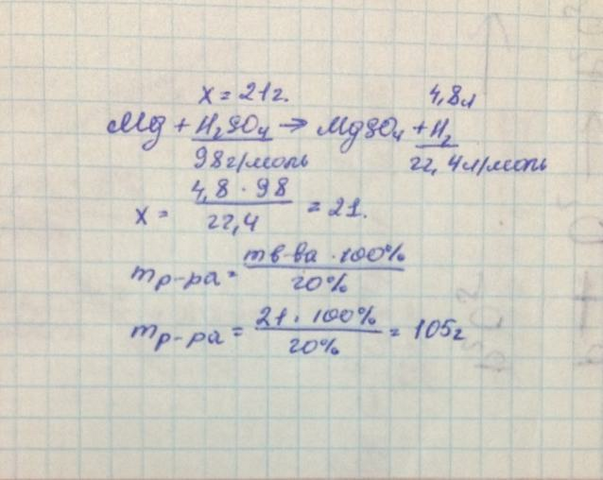 x = 21г. 4,8л
Mg + H₂SO₄ → MgSO₄ + H₂
98г/моль 22,4л/моль
x = 4,8 · 98 / 22,4 = 21.
mр-ра = mв-ва · 100% / 20%
mр-ра = 21 · 100% / 20% = 105г